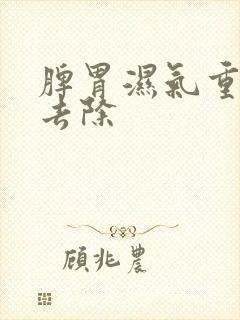 脾胃濕氣重
去除
顧兆農